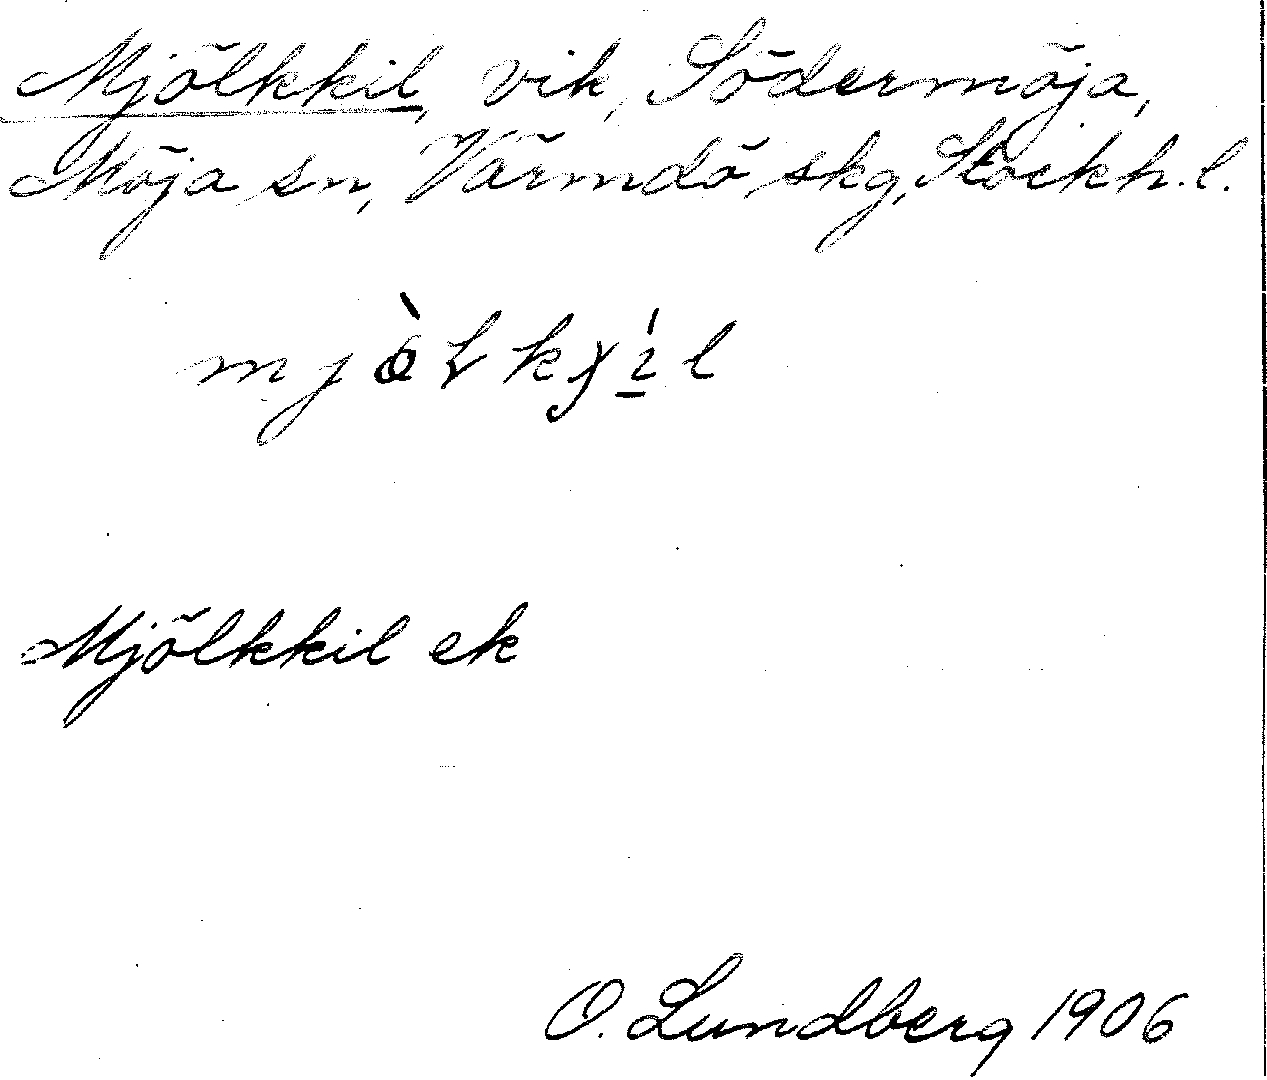 Mjölkkil, vik, Södermöja,
Möja sn, Värmdö skg, Stockh. l.
Mjölkkil ek
O. Lundberg 1906